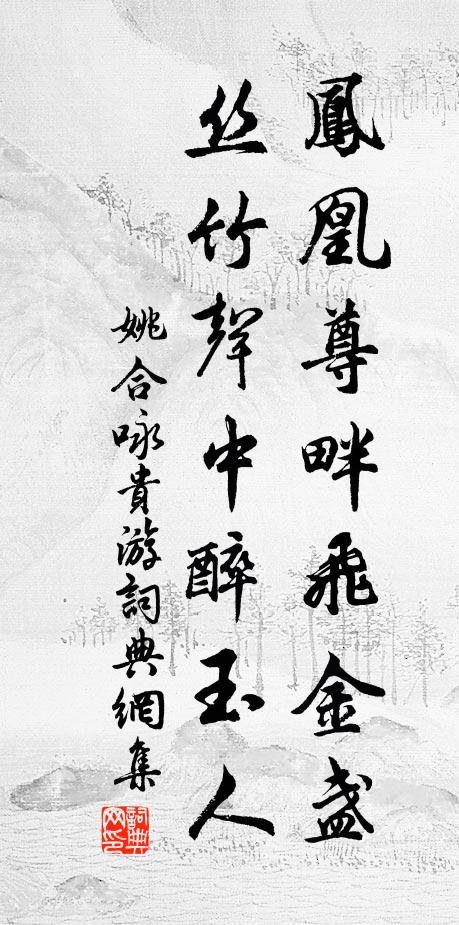 鳳凰尊畔飛金盞
丝竹聲中醉玉人
姚合咏貴游詞典網集
詞典网印